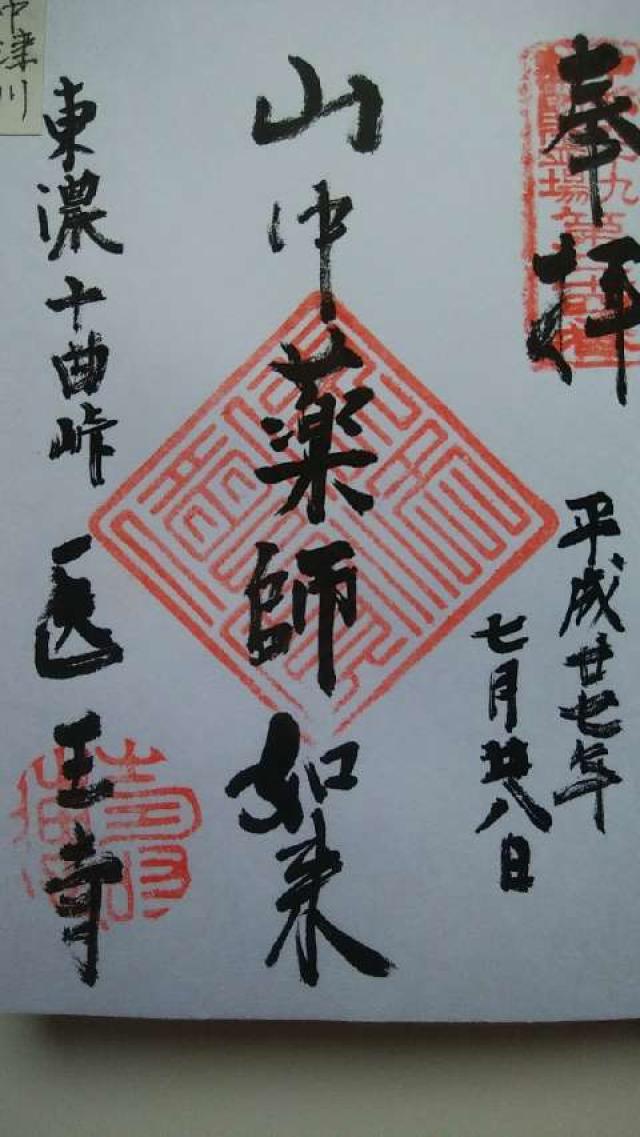 奉拝
平成廿七年
七月廿八日
山中薬師如来
東濃十曲峠
医王寺
中津川